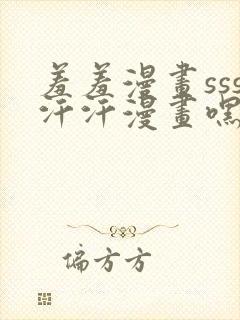 羞羞漫畫sss
汗汗漫畫嘿
偏方方